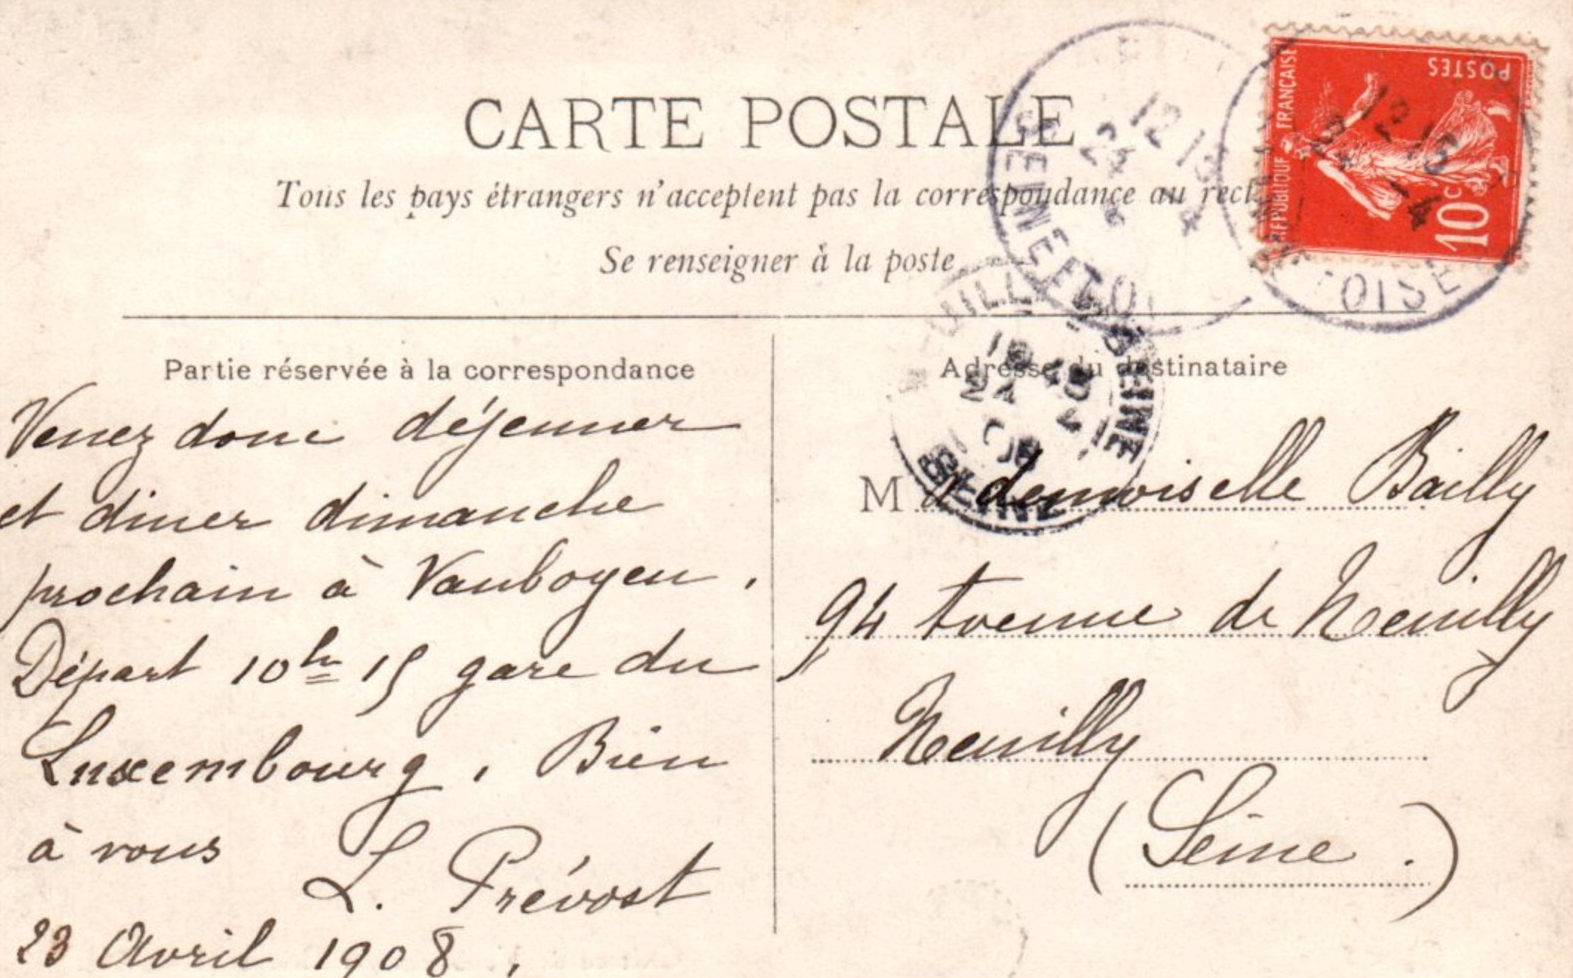 CARTE POSTALE
Tous les pays étrangers n'acceptent pas la correspondance au rect
Se renseigner à la poste
REPUBLIQUE FRANÇAISE
POSTES
10c
12 15
24 - 4
OISE
12 15
24
4
SEINE ET OI
SEINE
Partie réservée à la correspondance
Venez donc déjeuner
et diner dimanche
prochain à Vauboyen.
Départ 10h 15 gare du
Luxembourg. Bien
à vous
L. Prévost
23 Avril 1908.
Adresse du destinataire
Mademoiselle Bailly
94 Avenue de Neuilly
Neuilly
(Seine.)